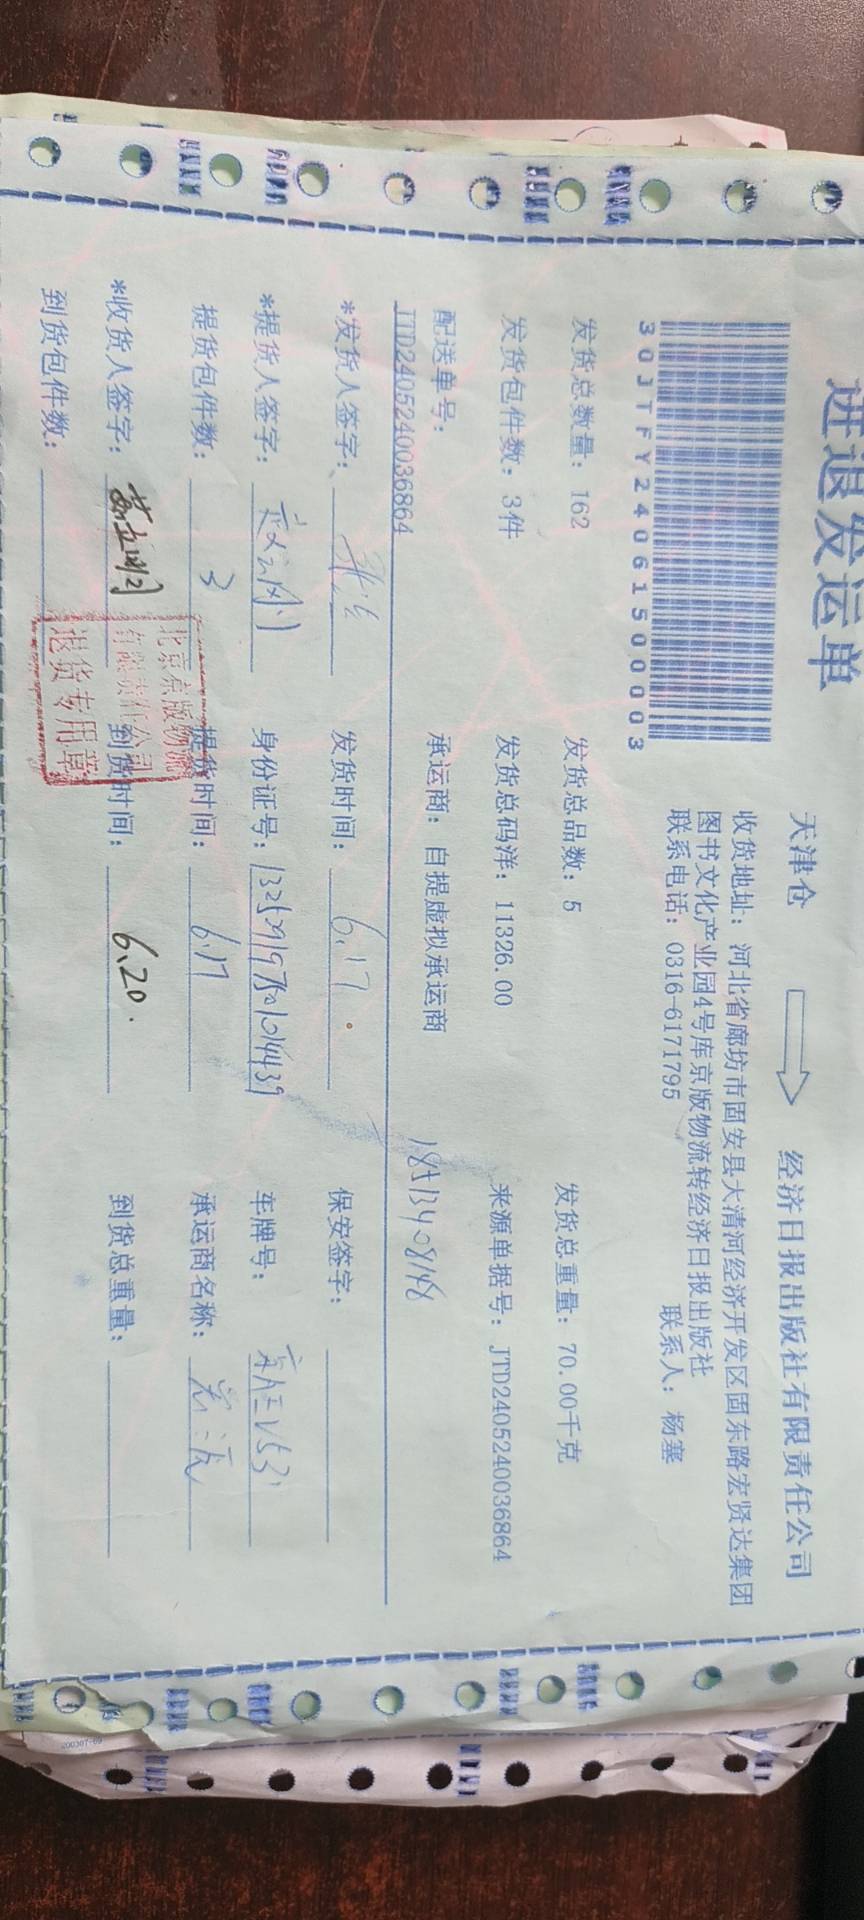 进退发运单
天津仓 经济日报出版社有限责任公司
收货地址：河北省廊坊市固安县大清河经济开发区固东路宏贤达集团
图书文化产业园4号库京版物流转经济日报出版社
联系电话：0316-6171795 联系人：杨塞
30JTFY2406150003
发货总数量：162 发货总品数：5 发货总重量：70.00千克
发货包件数：3件 发货总码洋：11326.00 来源单据号：JTD2405240036864
配送单号： 承运商：自提虚拟承运商 18513408148
JTD2405240036864
*发货人签字： 发货时间：6.17. 保安签字：
*提货人签字： 身份证号： 车牌号：
提货包件数：3 提货时间：6.17 承运商名称：
*收货人签字： 到货时间：6.20. 到货总重量：
到货包件数：
北京京版物流
有限责任公司
退货专用章
200307-09